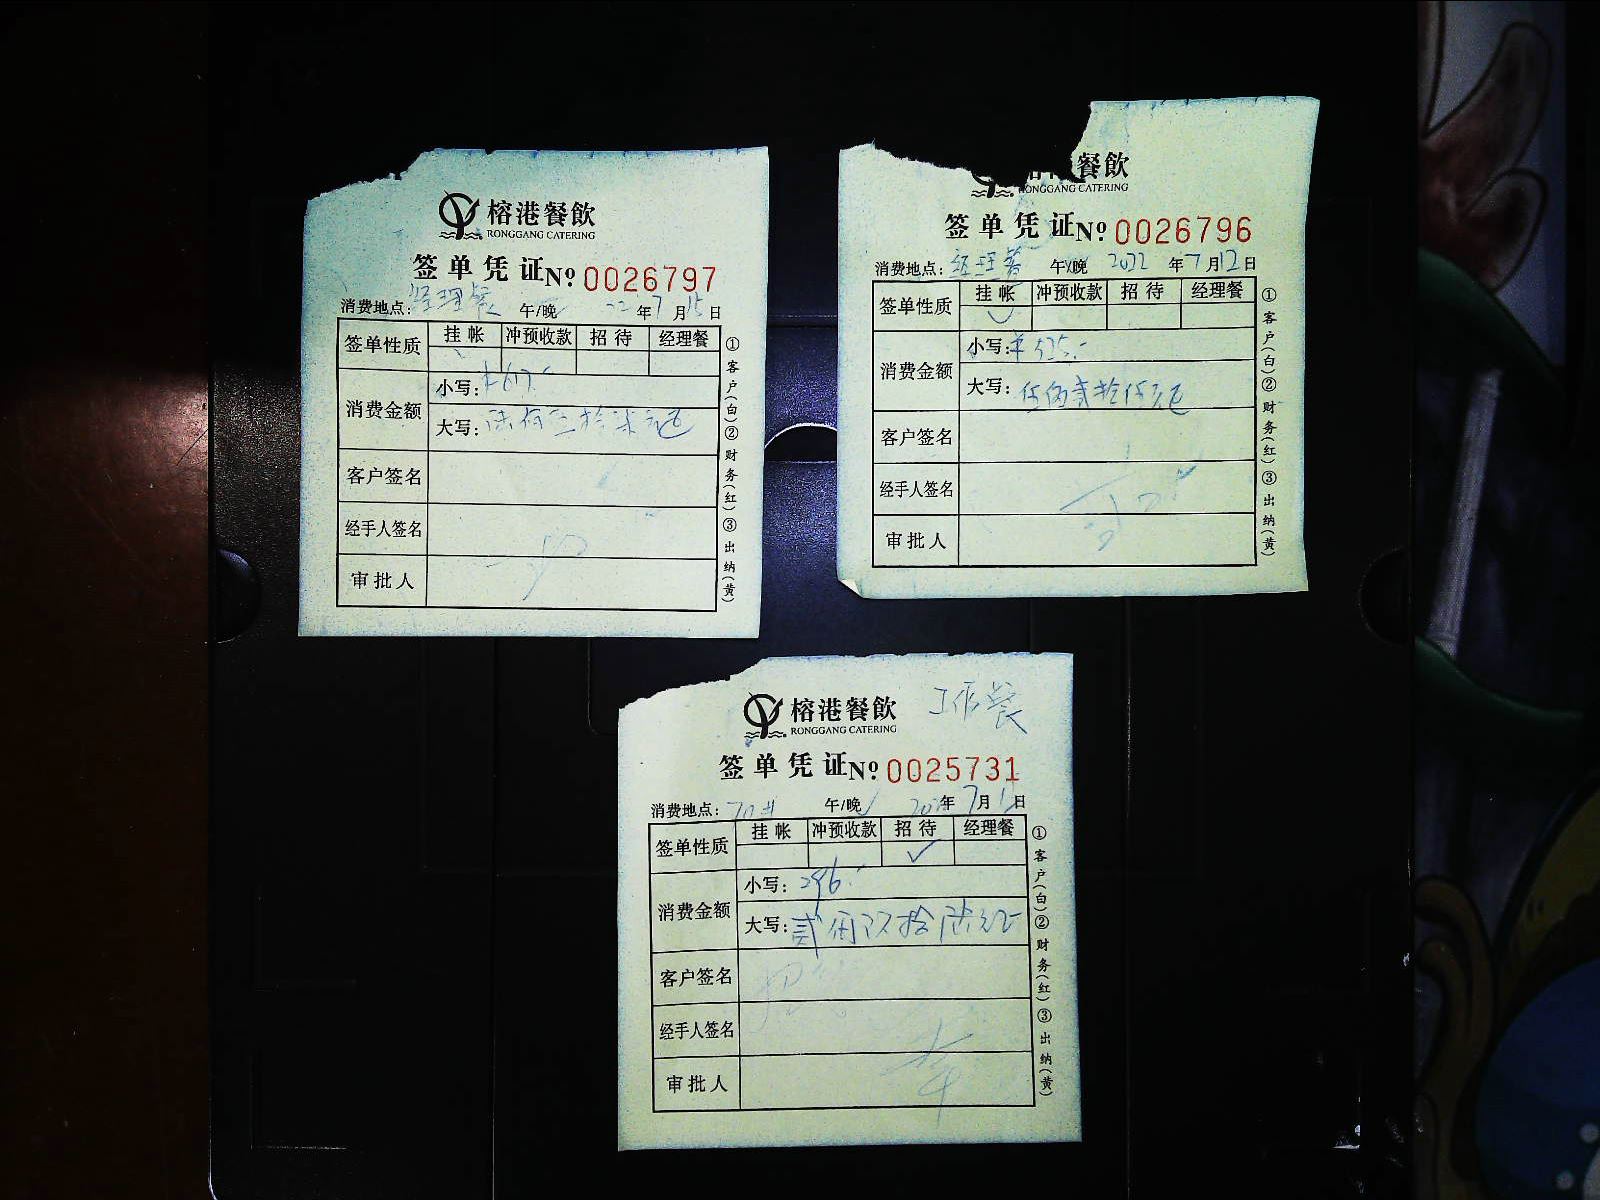 榕港餐飲
RONGGANG CATERING
签单凭证 No 0026797
消费地点：经理餐 午/晚 22年7月15日
签单性质 挂帐 冲预收款 招待 经理餐
消费金额 小写：¥617.-
大写：陆佰壹拾柒元
客户签名
经手人签名
审批人
①客户（白）②财务（红）③出纳（黄）
餐飲
RONGGANG CATERING
签单凭证 No 0026796
消费地点：经理餐 午/晚 2022年7月12日
签单性质 挂帐 冲预收款 招待 经理餐
消费金额 小写：¥525.-
大写：伍佰贰拾伍元
客户签名
经手人签名
审批人
①客户（白）②财务（红）③出纳（黄）
榕港餐飲 工作餐
RONGGANG CATERING
签单凭证 No 0025731
消费地点： 午/晚 年7月 日
签单性质 挂帐 冲预收款 招待 经理餐
✓
消费金额 小写：296.-
大写：贰佰玖拾陆元
客户签名
经手人签名
审批人
①客户（白）②财务（红）③出纳（黄）